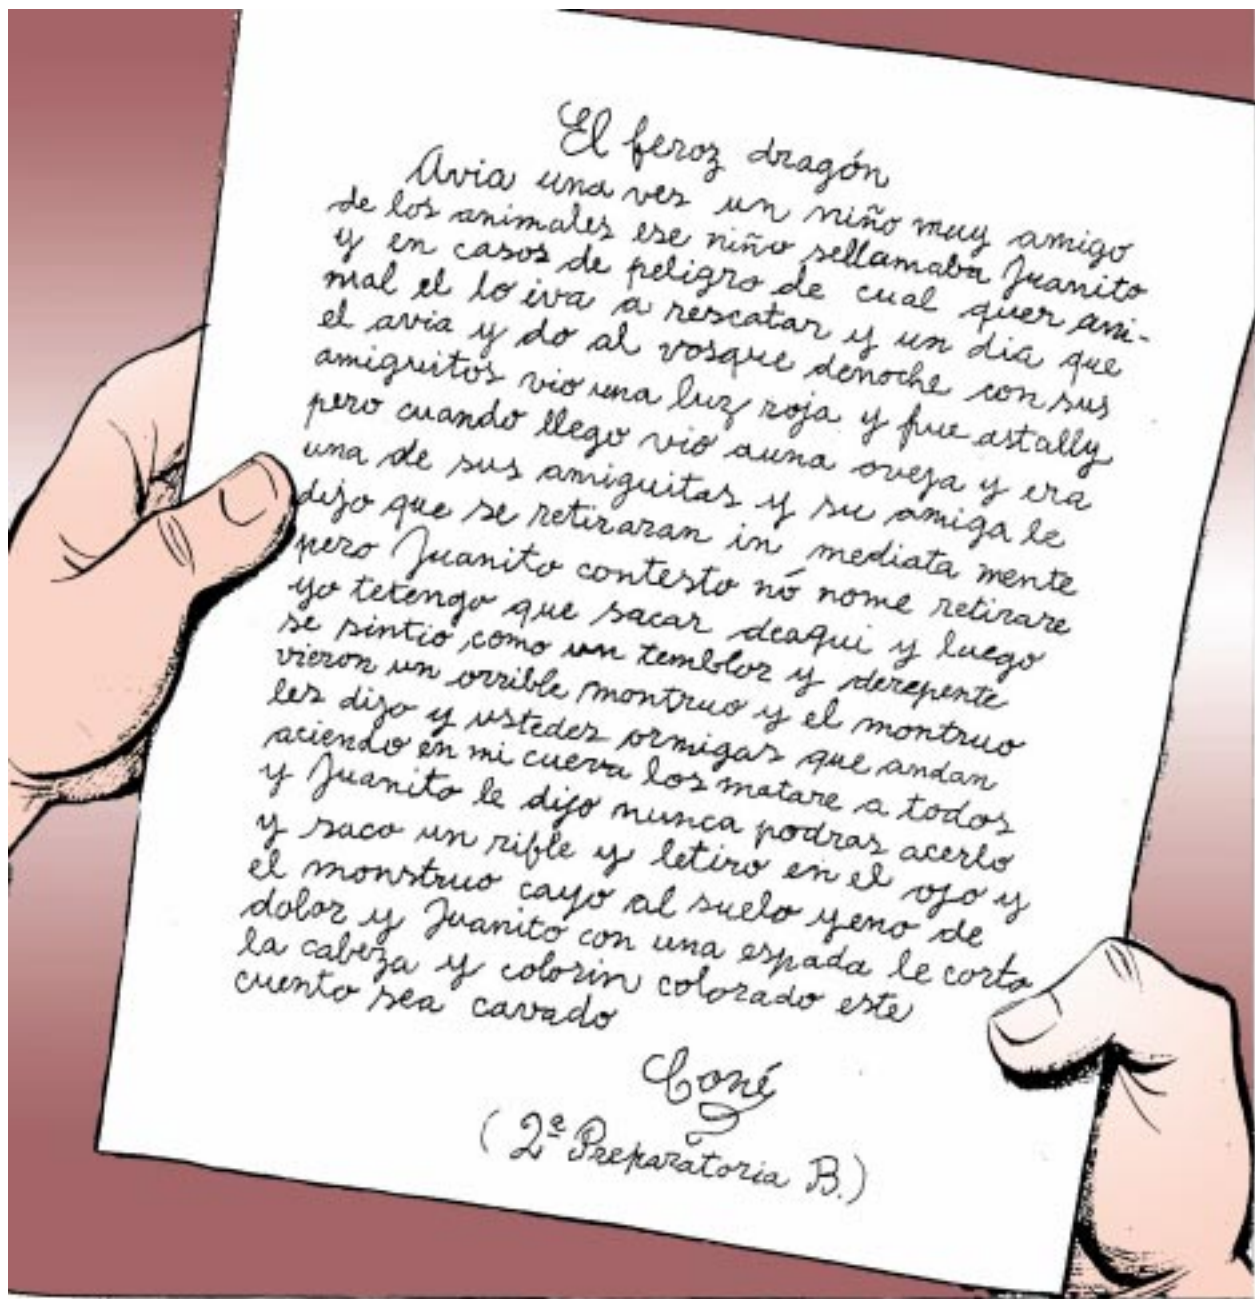 El feroz dragón
Avia una ves un niño muy amigo
de los animales ese niño sellamaba Juanito
y en casos de peligro de cual quer ani-
mal el lo iva a rescatar y un dia que
el avia y do al vosque denoche con sus
amiguitos vio una luz roja y fue astally
pero cuando llego vio auna oveja y era
una de sus amiguitas y su amiga le
dijo que se retiraran in mediata mente
pero Juanito contesto nó nome retirare
yo tetengo que sacar deaqui y luego
se sintio como un temblor y derepente
vieron un orrible montruo y el montruo
les dijo y ustedes ormigas que andan
aciendo en mi cueva los matare a todos
y Juanito le dijo nunca podras acerlo
y saco un rifle y letiro en el ojo y
el monstruo cayo al suelo yeno de
dolor y Juanito con una espada le corto
la cabeza y colorin colorado este
cuento sea cavado
Coné
(2ª Preparatoria B.)